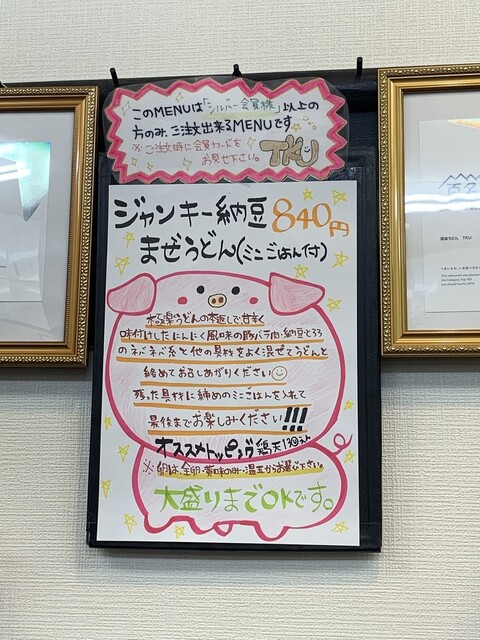 このMENUは「シルバー会員様」以上の
方のみ、ご注文出来るMENUです
※ご注文時に会員カードを
お見せ下さい。 TKU
ジャンキー納豆 840円
まぜうどん(ミニごはん付)
極楽うどんの本返しで甘辛く
味付けしたにんにく風味の豚バラ肉、納豆ととろろ
のネバネバ系と他の具材をよく混ぜてうどんと
絡めてお召しあがりください
残った具材に締めのミニごはんを入れて
最後までお楽しみください!!!
オススメトッピング 鶏天
※卵は、全卵・黄味のみ・温玉からお選び下さい。
大盛りまでOKです。
百名
極楽うどん TKU